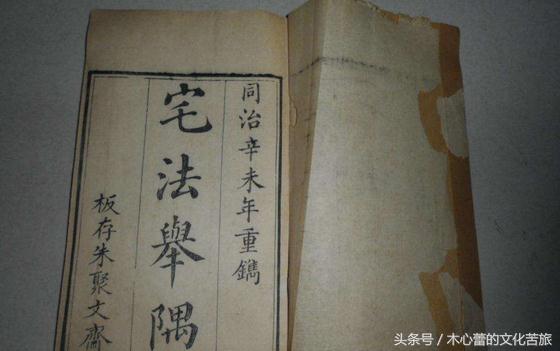 同治辛未年重鐫
宅法舉隅
板存朱聚文齋
头条号／木心蕾的文化苦旅